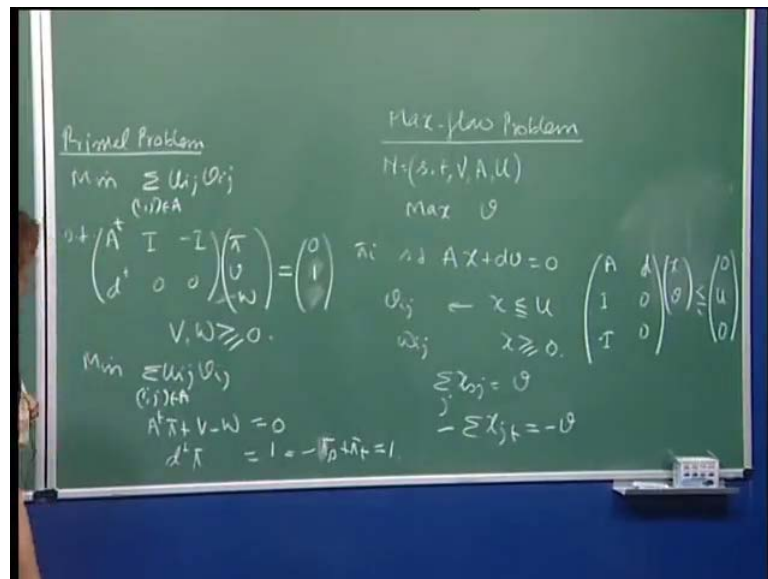 Primal Problem
Min Σ u_ij v_ij
(i,j)∈A
s.t (A^t I -I) (π) = (0)
(d^t 0 0) (v) (1)
(-w)
V, W ≥ 0.
Min Σ u_ij v_ij
(i,j)∈A
A^t π + V - W = 0
d^t π = 1 = -π_s + π_t = 1.
Max-flow Problem
N=(s,t,V,A,U)
Max v
π_i s.t Ax + dv = 0
v_ij ← x ≤ u
w_ij x ≥ 0.
Σ x_sj = v
j
- Σ x_jt = -v
(A d) (x) ≤ (0)
(I 0) (v) (u)
(-I 0) (0)